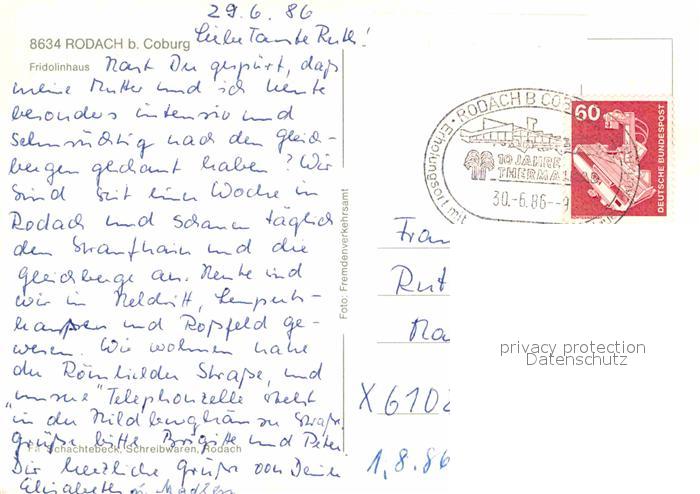 29.6.86
8634 RODACH b. Coburg
Liebe Tante Ruth!
Fridolinhaus
Hast Du gespürt, daß
meine Mutter und ich heute
besonders intensiv und
sehnsüchtig nach den Gleich-
bergen geschaut haben? Wir
sind seit einer Woche in
Rodach und schauen täglich
den Straufhain und die
Gleichberge an. Heute sind
wir in Heldritt, Lempertz-
hausen und Roßfeld ge-
wesen. Wir wohnen nahe
der Römhilder Straße, und
"unsere" Telephonzelle steht
in der Hildburghäuser Straße.
Grüße bitte Brigitte und Peter
Fa. Schachtebeck, Schreibwaren, Rodach
Dir herzliche Grüße von Deiner
Elisabeth u.
Foto: Fremdenverkehrsamt
RODACH B COB
Erholungsort mit
10 JAHRE
THERMAL
30.-6.86--9
60
DEUTSCHE BUNDESPOST
Frau
Rut
X 6102
1.8.86
privacy protection
Datenschutz